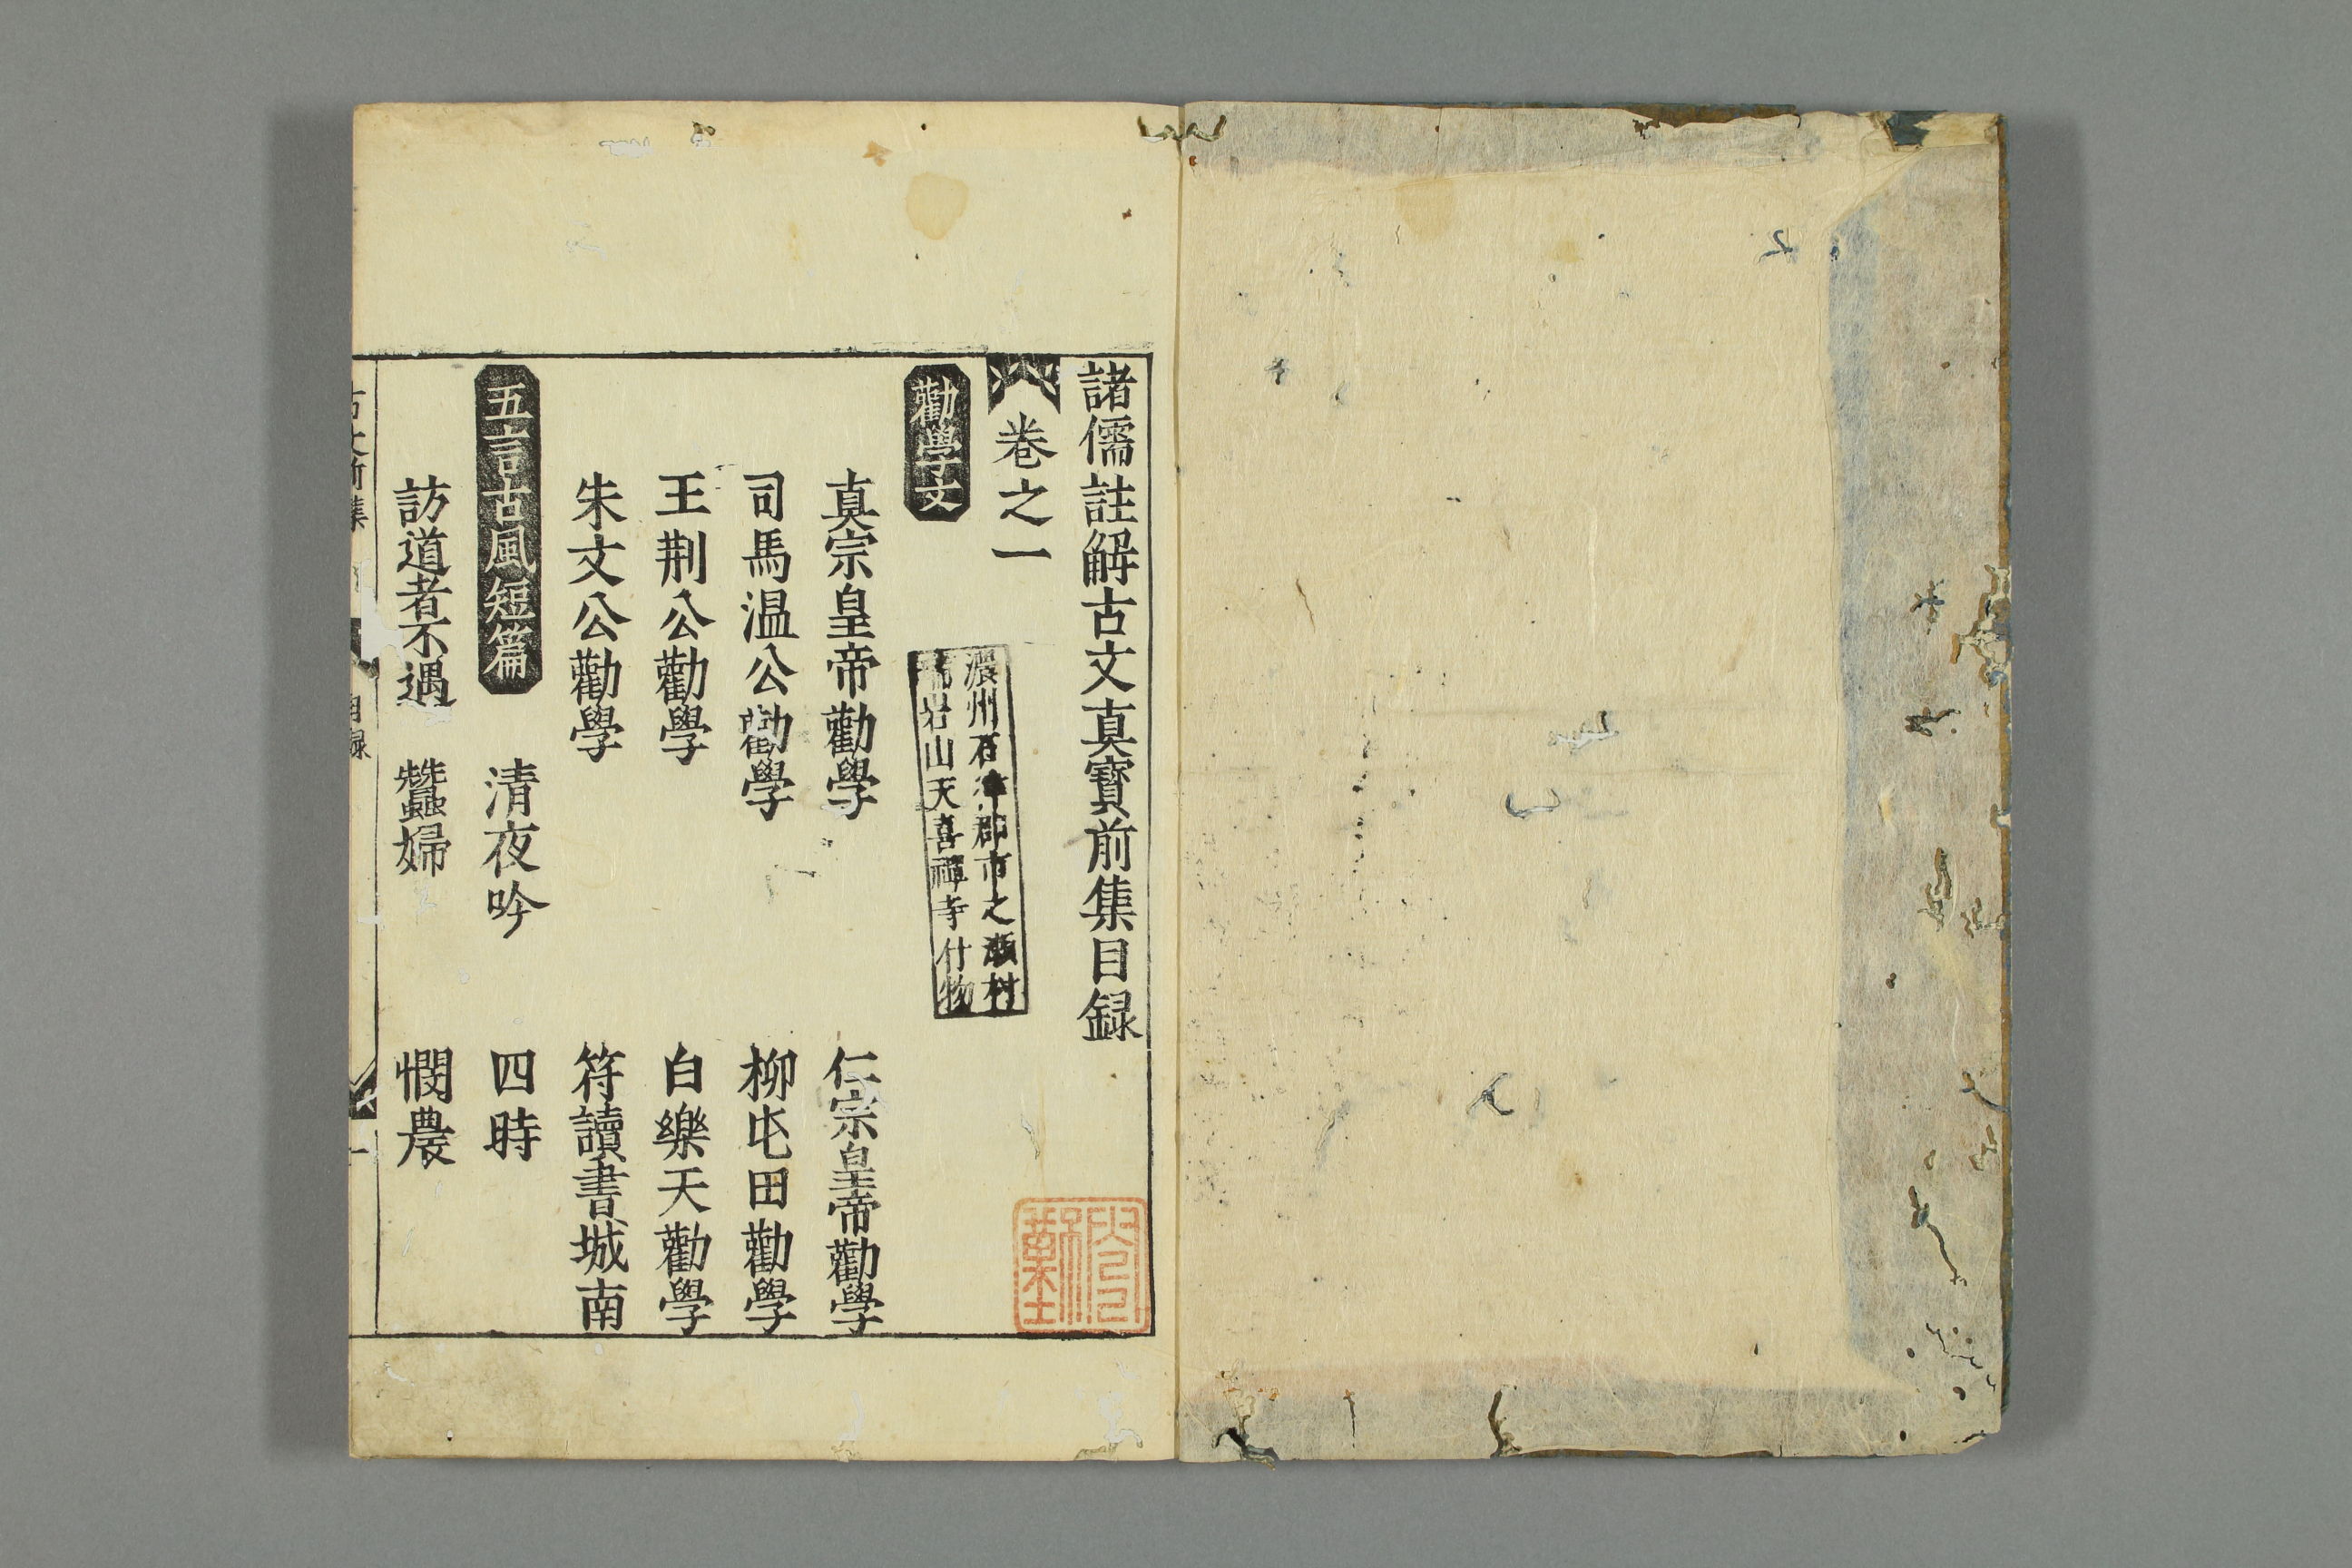 諸儒註解古文真寳前集目録
卷之一
濃州石津郡市之瀬村
瑞岩山天喜禪寺什物
勸學文
真宗皇帝勸學 仁宗皇帝勸學
司馬温公勸學 柳屯田勸學
王荆公勸學 白樂天勸學
朱文公勸學 符讀書城南
五言古風短篇 清夜吟 四時
訪道者不遇 蠶婦 憫農
古文前集 目録 一